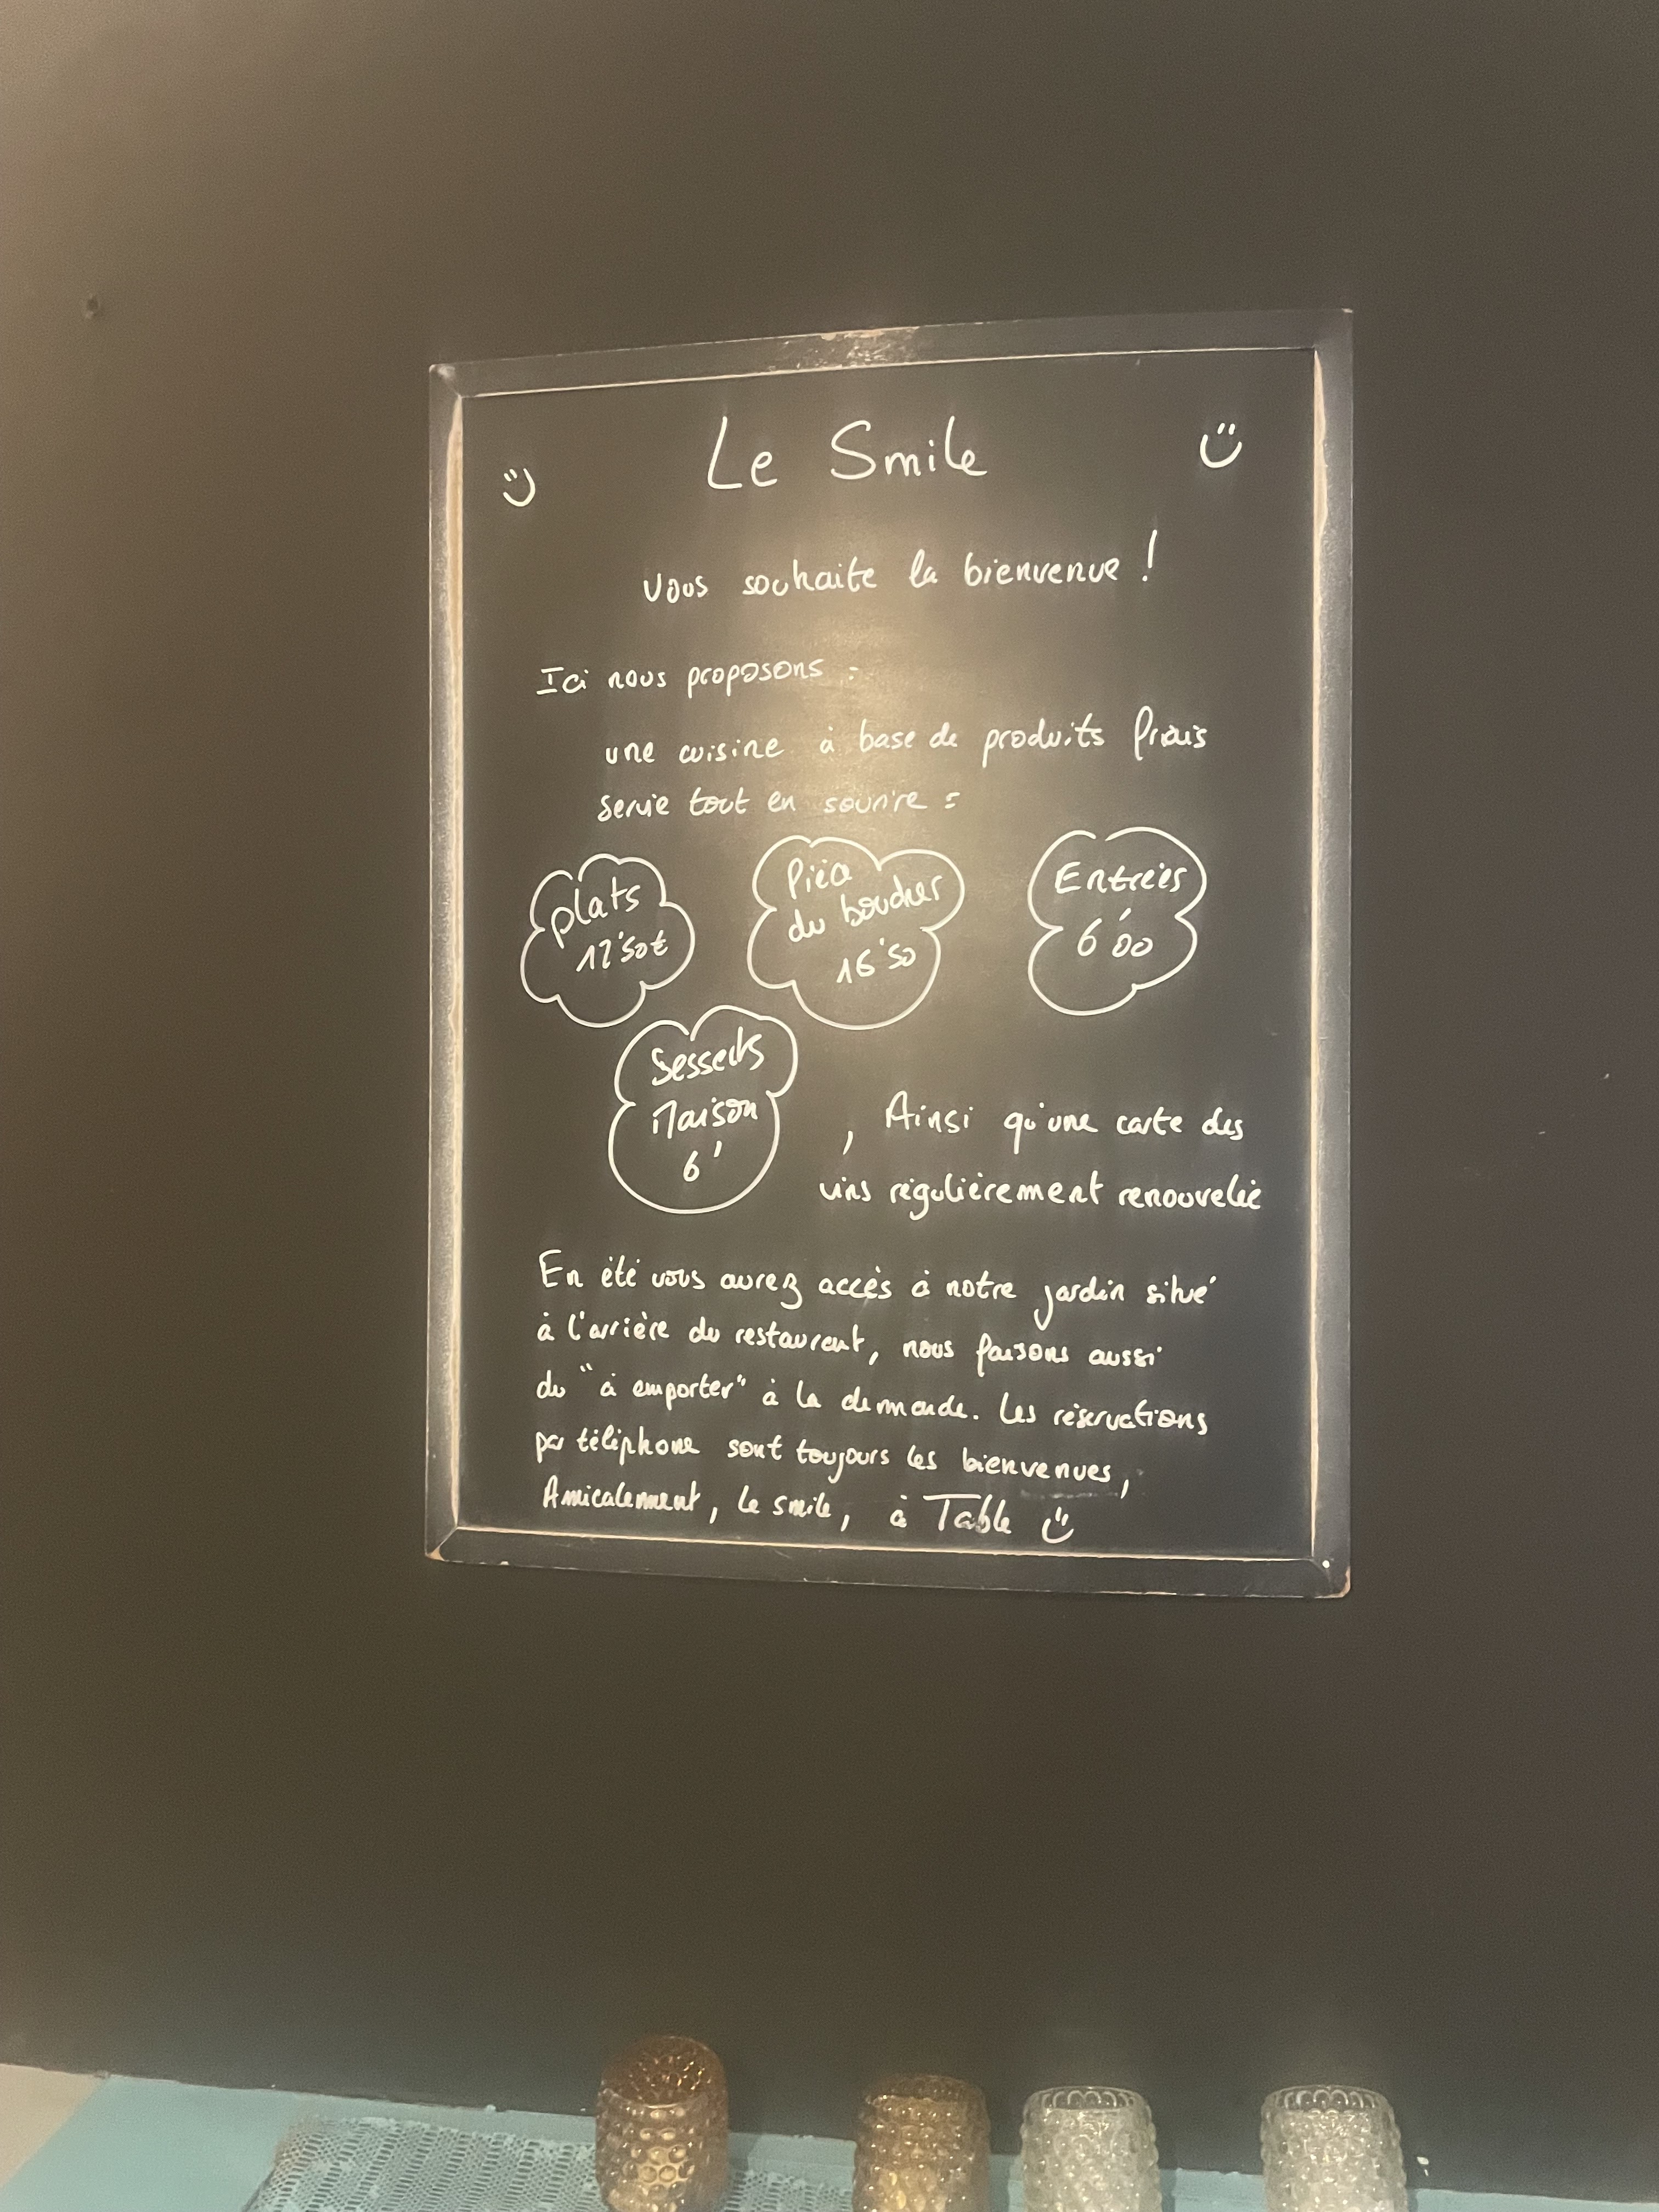 Le Smile
vous souhaite la bienvenue !
Ici nous proposons :
une cuisine à base de produits frais
servie tout en sourire :
plats
12'50€
Pièce
du boucher
16'50
Entrées
6'00
Desserts
Maison
6'
, Ainsi qu'une carte des
vins régulièrement renouvelée
En été vous aurez accès à notre jardin situé
à l'arrière du restaurant, nous faisons aussi
du "à emporter" à la demande. Les réservations
par téléphone sont toujours les bienvenues,
Amicalement, le smile, à Table